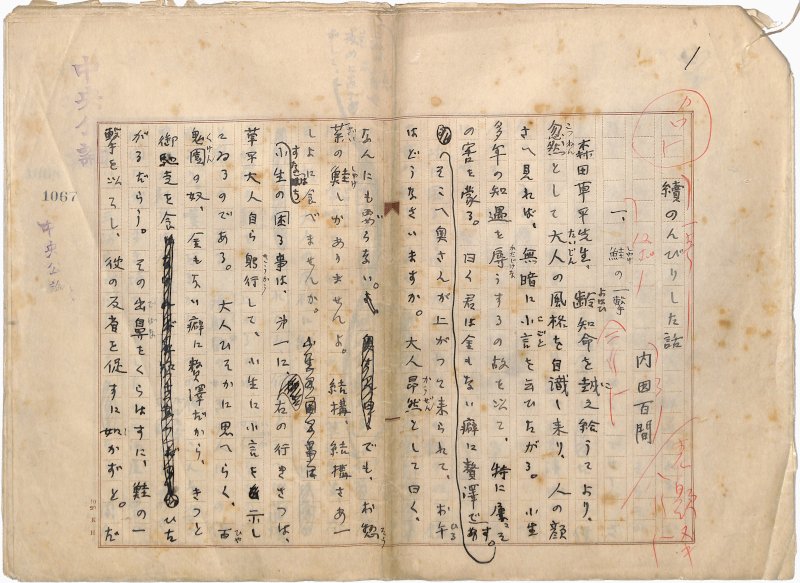 1
續のんびりした話
内田百間
一、鮭の一撃
森田草平先生、齢知命を越え給うてより、
忽然として大人の風格を自識し来り、人の顔
さへ見れば、無暗に小言を云ひたがる。小生
多年の知遇を辱うするの故を以て、特に屢〻そ
の害を蒙る。曰く君は金もない癖に贅澤です。
そこへ奥さんが上がつて来られて、お午
はどうなさいますか。大人昂然として曰く、
なんにも要らない。でも、お惣
菜の鮭しかありませんよ。結構、結構さあ一
しよに食べませんか。
小生の困る事は、第一に、右の行きさつは、
草平大人自ら躬行して、小生に小言を示し
てゐるのである。大人ひそかに思へらく、百
鬼園の奴、金もない癖に贅澤だから、きつと
御馳走を食ひた
がるだらう。その出鼻をくらはすに、鮭の一
撃を以てし、彼の反省を促すに如かずと。だ
1067
中央公論